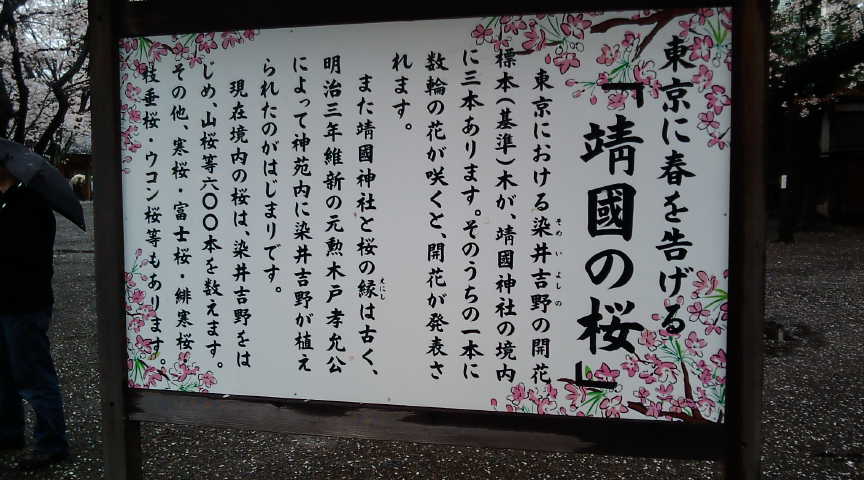 東京に春を告げる
「靖國の桜」
東京における染井吉野の開花
そめいよしの
標本(基準)木が、靖國神社の境内
に三本あります。そのうちの一本に
数輪の花が咲くと、開花が発表さ
れます。
また靖國神社と桜の縁は古く、
えにし
明治三年維新の元勲木戸孝允公
によって神苑内に染井吉野が植え
られたのがはじまりです。
現在境内の桜は、染井吉野をは
じめ、山桜等六〇〇本を数えます。
その他、寒桜・富士桜・緋寒桜・
枝垂桜・ウコン桜等もあります。